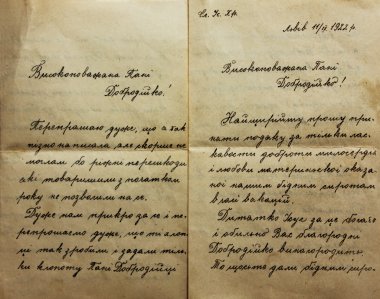 Високоповажана Пані
Добродійко!
Перепрашаю дуже, що а так
пізно написала, але скорше не
моглам, бо ріжні перешкоди
які товаришили з початком
року не позволили на се.
Дуже нам прикро за те і пе-
репрошаємо дуже, що ті хлоп-
ці так зробили і задали тіль-
ки клопоту Пані Добродійці
Сл. Іс. Хр.
Львів 11/ 1922 р.
Високоповажана Пані
Добродійко!
Найщирійшу прошу при-
няти подяку за тільки лас-
кавости доброти милосердя
і любови материнської оказа-
ної нашим бідним сиротам
в часі вакацій.
Дитятко Ісус за це богато
і обильно Вас благородні
Добродійко винагородить.
По щастю дали бідним сиро-